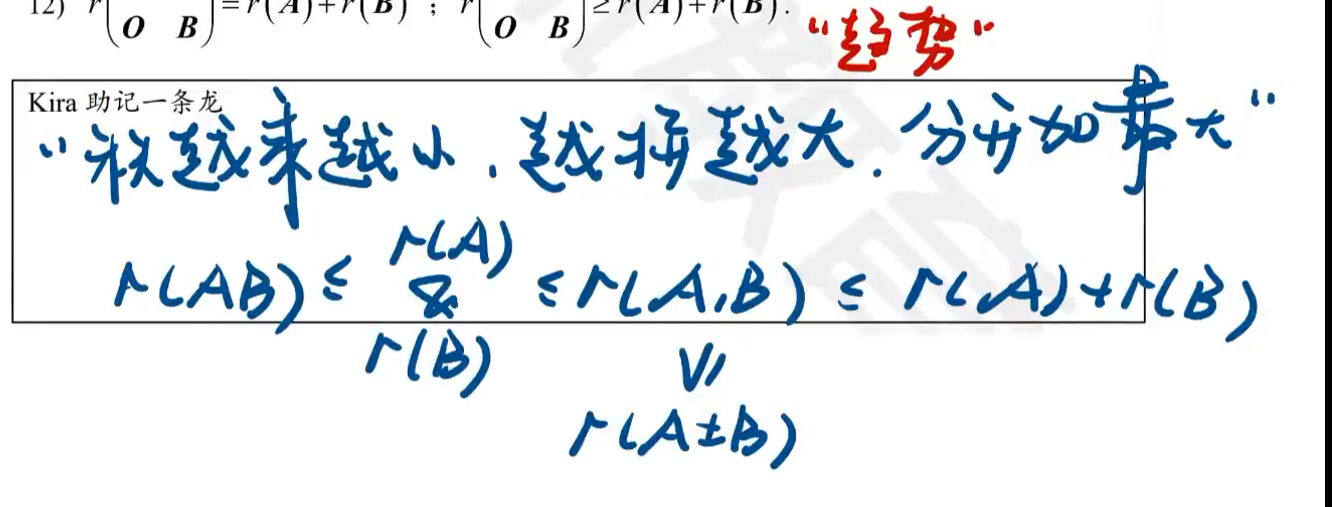 12) r( O B )=r(A)+r(B) ; r( O B )≥r(A)+r(B).
“趋势”
Kira 助记一条龙
“秩越乘越小,越拼越大.分开加最大”
r(AB) ≤ r(A) & r(B) ≤ r(A,B) ≤ r(A)+r(B)
≥
r(A±B)